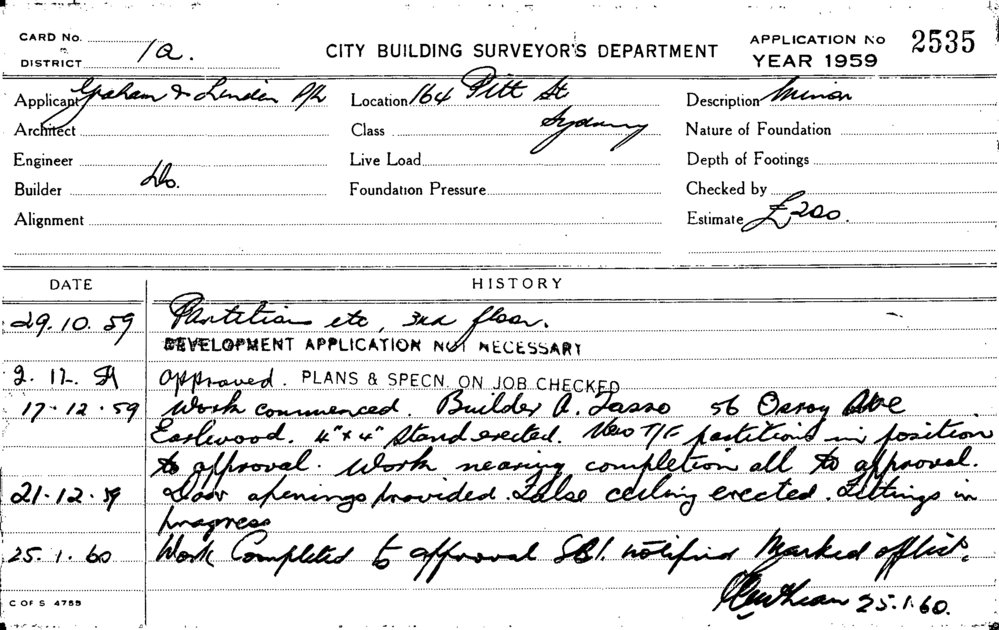 CARD No.
DISTRICT 1a.
CITY BUILDING SURVEYOR'S DEPARTMENT
APPLICATION No 2535
YEAR 1959
Applicant Graham & Linden P/L
Location 164 Pitt St
Sydney
Description Minor
Architect
Class
Nature of Foundation
Engineer
Live Load
Depth of Footings
Builder Do.
Foundation Pressure
Checked by
Alignment
Estimate £200.
DATE HISTORY
29.10.59 Partitions etc, 3rd floor.
DEVELOPMENT APPLICATION NOT NECESSARY
2.12.59 Approved. PLANS & SPECN. ON JOB CHECKED
17.12.59 Work commenced. Builder A. Tasso 56 Ave
Earlwood. 4"x4" Stand erected. New T/F partitions in position
to approval. Work nearing completion all to approval.
21.12.59 Door openings provided. False ceiling erected. Fittings in
progress
25.1.60 Work Completed to approval SBI. notified Marked off list.
25.1.60.
C OF S 4759